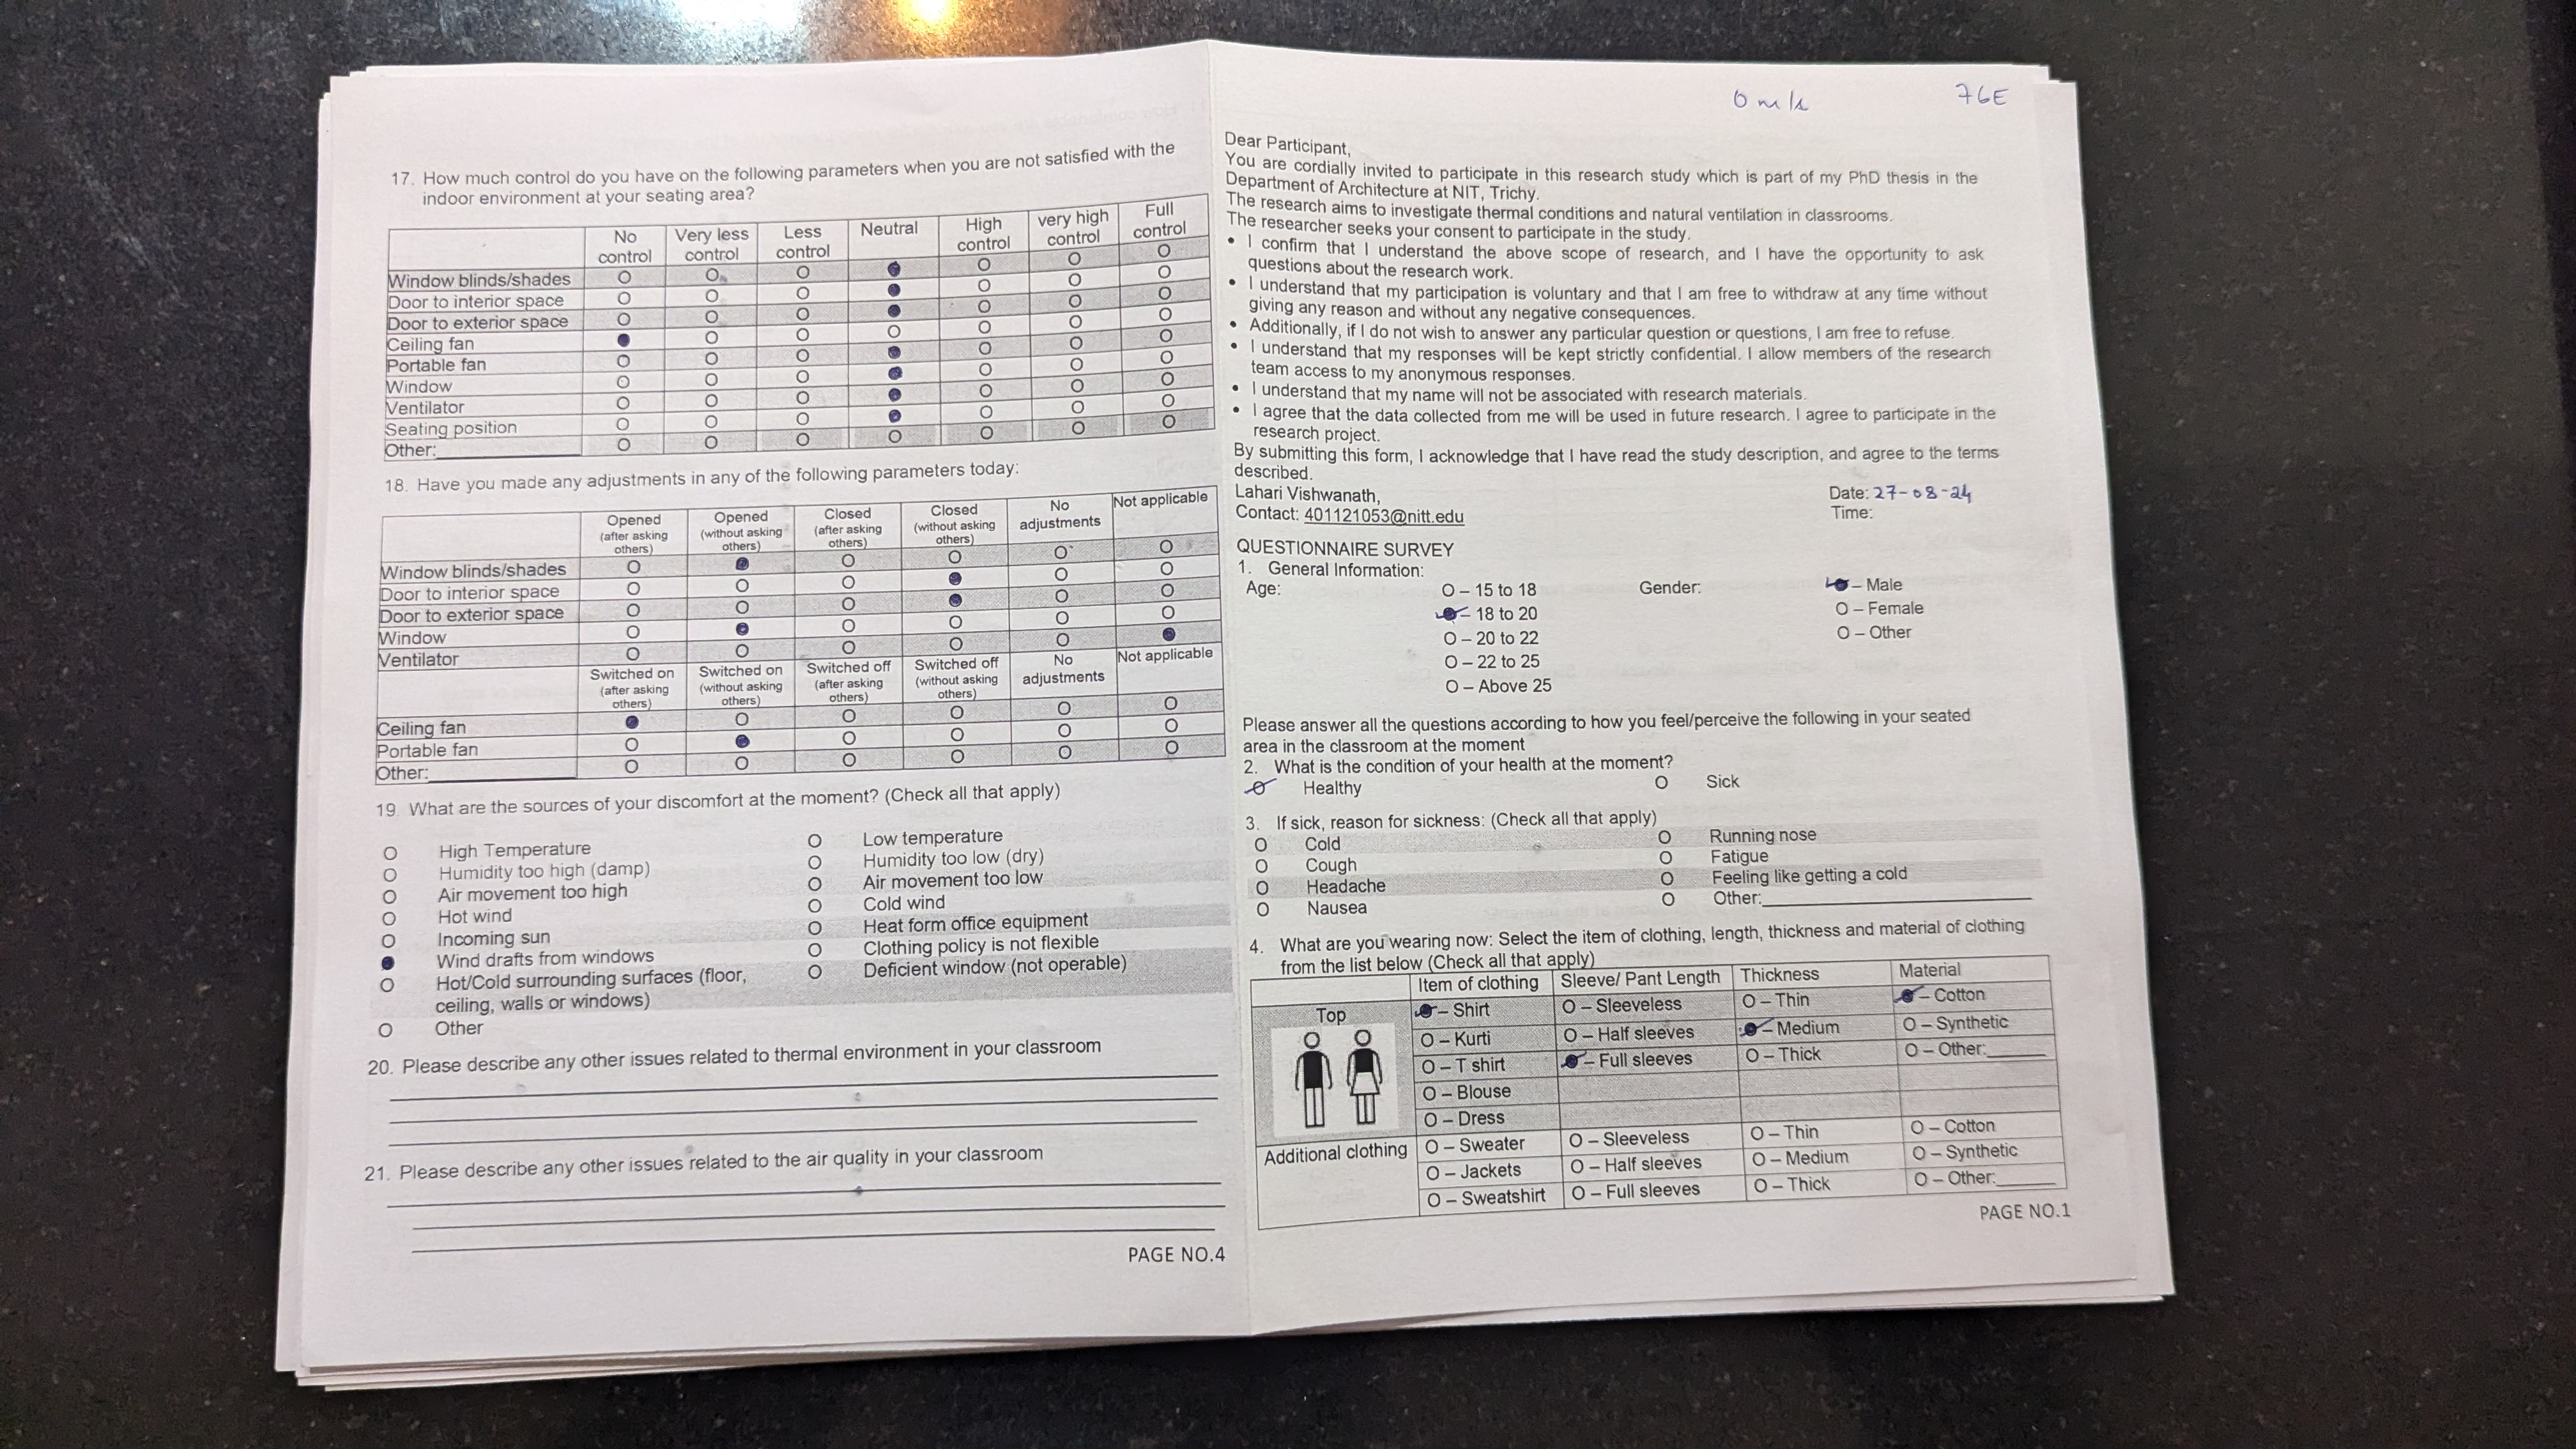 17. How much control do you have on the following parameters when you are not satisfied with the
indoor environment at your seating area?
No control Very less control Less control Neutral High control very high control Full control
Window blinds/shades O O O ● O O O
Door to interior space O O O ● O O O
Door to exterior space O O O ● O O O
Ceiling fan ● O O O O O O
Portable fan O O O ● O O O
Window O O O ● O O O
Ventilator O O O ● O O O
Seating position O O O ● O O O
Other:__________ O O O O O O O
18. Have you made any adjustments in any of the following parameters today:
Opened (after asking others) Opened (without asking others) Closed (after asking others) Closed (without asking others) No adjustments Not applicable
Window blinds/shades O ● O O O O
Door to interior space O O O ● O O
Door to exterior space O O O ● O O
Window O ● O O O O
Ventilator O O O O O ●
Switched on (after asking others) Switched on (without asking others) Switched off (after asking others) Switched off (without asking others) No adjustments Not applicable
Ceiling fan ● O O O O O
Portable fan O ● O O O O
Other:__________ O O O O O O
19. What are the sources of your discomfort at the moment? (Check all that apply)
O High Temperature O Low temperature
O Humidity too high (damp) O Humidity too low (dry)
O Air movement too high O Air movement too low
O Hot wind O Cold wind
O Incoming sun O Heat form office equipment
● Wind drafts from windows O Clothing policy is not flexible
O Hot/Cold surrounding surfaces (floor, O Deficient window (not operable)
ceiling, walls or windows)
O Other
20. Please describe any other issues related to thermal environment in your classroom
21. Please describe any other issues related to the air quality in your classroom
PAGE NO.4
0 m/s 76E
Dear Participant,
You are cordially invited to participate in this research study which is part of my PhD thesis in the
Department of Architecture at NIT, Trichy.
The research aims to investigate thermal conditions and natural ventilation in classrooms.
The researcher seeks your consent to participate in the study.
• I confirm that I understand the above scope of research, and I have the opportunity to ask
questions about the research work.
• I understand that my participation is voluntary and that I am free to withdraw at any time without
giving any reason and without any negative consequences.
• Additionally, if I do not wish to answer any particular question or questions, I am free to refuse.
• I understand that my responses will be kept strictly confidential. I allow members of the research
team access to my anonymous responses.
• I understand that my name will not be associated with research materials.
• I agree that the data collected from me will be used in future research. I agree to participate in the
research project.
By submitting this form, I acknowledge that I have read the study description, and agree to the terms
described.
Lahari Vishwanath, Date: 27-08-24
Contact: 401121053@nitt.edu Time:
QUESTIONNAIRE SURVEY
1. General Information:
Age: O – 15 to 18 Gender: ● – Male
● – 18 to 20 O – Female
O – 20 to 22 O – Other
O – 22 to 25
O – Above 25
Please answer all the questions according to how you feel/perceive the following in your seated
area in the classroom at the moment
2. What is the condition of your health at the moment?
O Healthy O Sick
3. If sick, reason for sickness: (Check all that apply)
O Cold O Running nose
O Cough O Fatigue
O Headache O Feeling like getting a cold
O Nausea O Other:__________
4. What are you wearing now: Select the item of clothing, length, thickness and material of clothing
from the list below (Check all that apply)
Item of clothing Sleeve/ Pant Length Thickness Material
Top ● – Shirt O – Sleeveless O – Thin ● – Cotton
O – Kurti O – Half sleeves ● – Medium O – Synthetic
O – T shirt ● – Full sleeves O – Thick O – Other:______
O – Blouse
O – Dress
Additional clothing O – Sweater O – Sleeveless O – Thin O – Cotton
O – Jackets O – Half sleeves O – Medium O – Synthetic
O – Sweatshirt O – Full sleeves O – Thick O – Other:______
PAGE NO.1